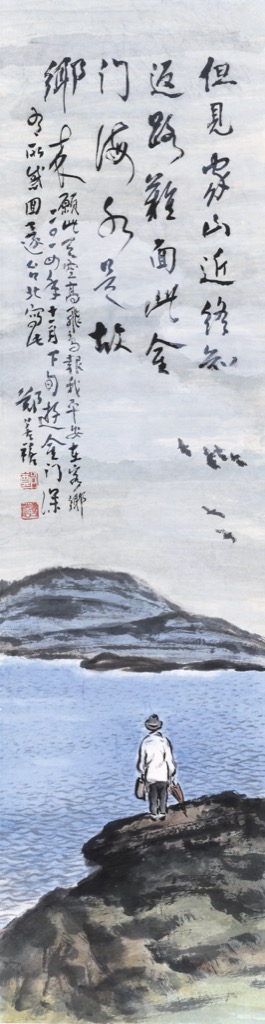 但見家山近終知
返路難面此金
门海水是故
鄉来
願此天空高飛鳥報我平安在客鄉
二〇〇四年十一月下旬遊金门深
有所感回遂台北寫此
鄭善禧